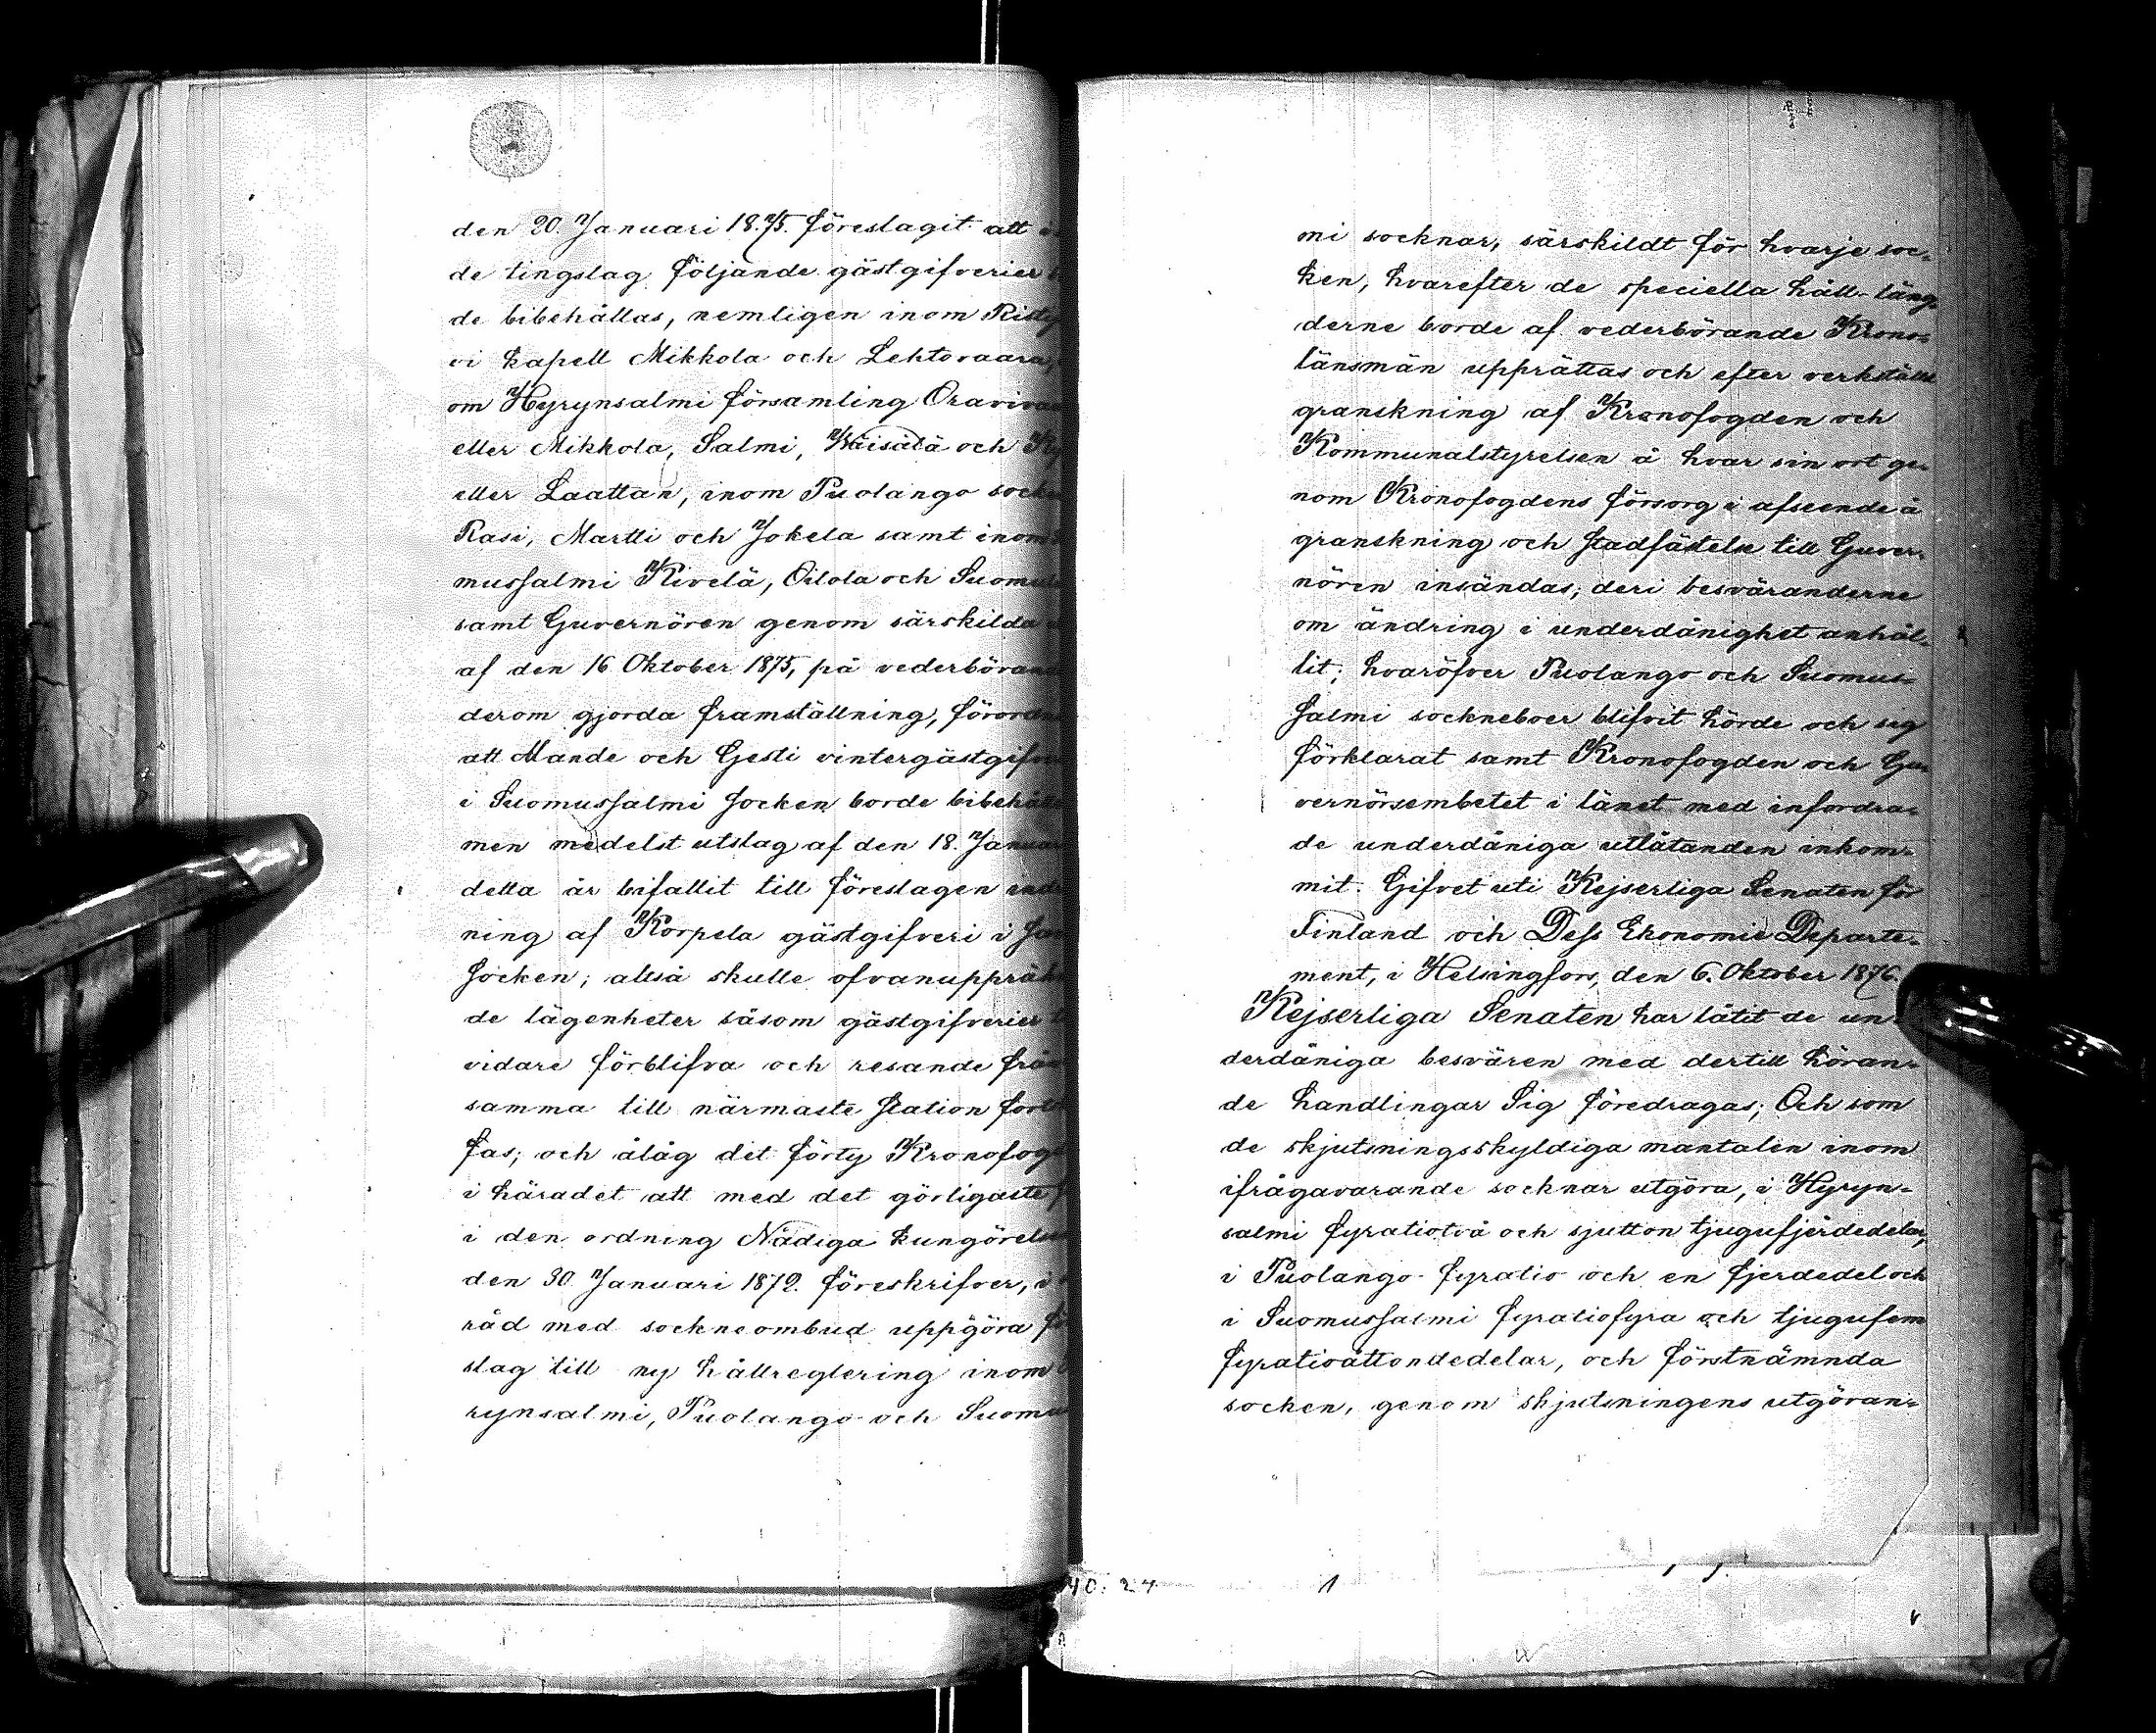 den 20. Januari 1875. föreslagit att
de tingslag följande gästgifverier
de bibehållas, nemligen inom
vi kapell Mikkola och Lehtovaara,
om Hyrynsalmi församling
eller Mikkola, Salmi, Wäisälä och
eller Laattan, inom Puolango
Rasi, Martti och Jokela samt inom
mussalmi Kivelä, Oilola och
samt Guvernören genom särskilda
af den 16 Oktober 1875, på
derom gjorda framställning,
att Mande och Gesti
i Suomussalmi socken borde
men medelst utslag af den 18.
detta år bifallit till föreslagen
ning af Korpela gästgifveri i
socken; alltså skulle
de lägenheter såsom gästgifverier
vidare förblifva och resande från
samma till närmaste station
fas; och ålåg det förty
i häradet att med det görligaste
i den ordning Nådiga
den 30. Januari 1872. föreskrifver, i
råd med sockneombud uppgöra
slag till ny hållreglering inom
rynsalmi, Puolango och
mi socknar, särskildt för hvarje soc-
ken, hvarefter de speciella håll-läng-
derne borde af vederbörande Krono-
länsmän upprättas och efter verkställd
granskning af Kronofogden och
Kommunalstyrelsen å hvar sin ort ge-
nom Kronofogdens försorg i afseende å
granskning och stadfästelse till Guver-
nören insändas; deri besväranderne
om ändring i underdånighet anhål-
lit; hvaröfver Puolango och Suomus-
salmi sockneboer blifvit hörde och sig
förklarat samt Kronofogden och Gu-
vernörsembetet i länet med infordra-
de underdåniga utlåtanden inkom-
mit. Gifvet uti Kejserliga Senaten för
Finland och Dess Ekonomie Departe-
ment, i Helsingfors, den 6. Oktober 1876.
Kejserliga Senaten har låtit de un-
derdåniga besvären med dertill höran-
de handlingar Sig föredragas; Och som
de skjutsningsskyldiga mantalen inom
ifrågavarande socknar utgöra, i Hyryn-
salmi fyratiotvå och sjutton tjugufjerdedelar,
i Puolango fyratio och en fjerdedel och
i Suomussalmi fyratiofyra och tjugufem
fyratioåttondedelar, och förstnämnda
socken, genom skjutsningens utgöran-